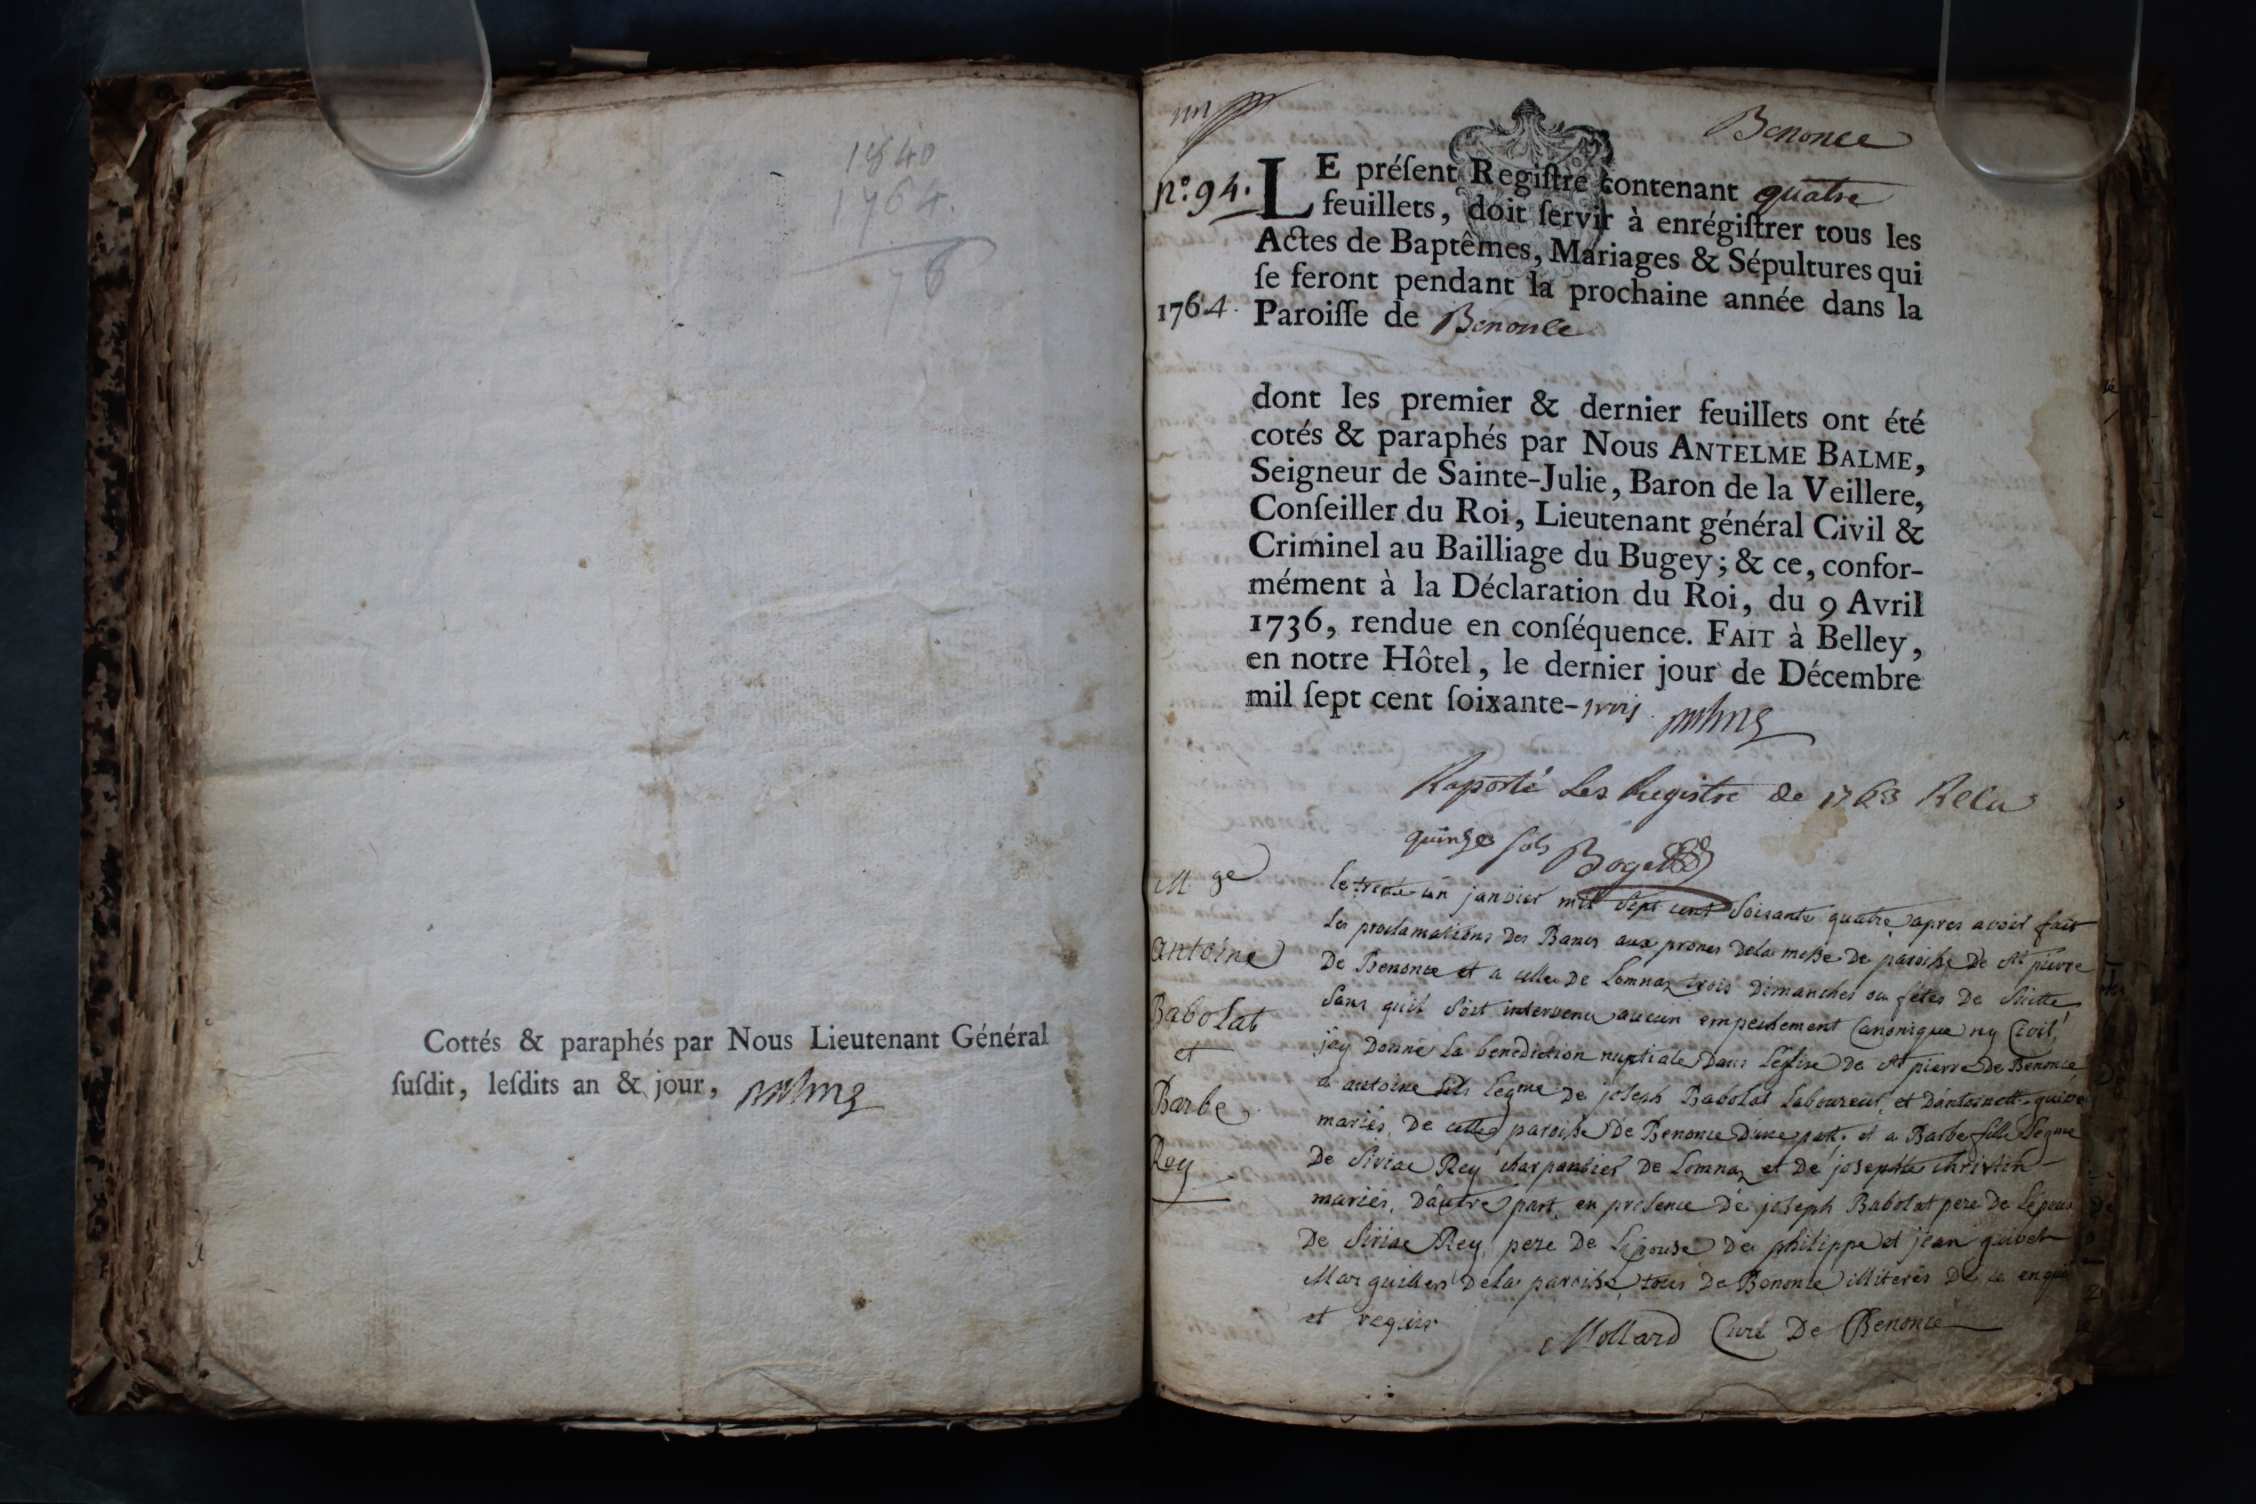 1840
1764.
76
Cottés & paraphés par Nous Lieutenant Général
ſuſdit, leſdits an & jour,
Benonce
n.º 94.
LE préſent Regiſtre contenant quatre
feuillets, doit ſervir à enrégiſtrer tous les
Actes de Baptêmes, Mariages & Sépultures qui
ſe feront pendant la prochaine année dans la
1764. Paroiſſe de Benonce
dont les premier & dernier feuillets ont été
cotés & paraphés par Nous ANTELME BALME,
Seigneur de Sainte-Julie, Baron de la Veillere,
Conſeiller du Roi, Lieutenant général Civil &
Criminel au Bailliage du Bugey; & ce, confor-
mément à la Déclaration du Roi, du 9 Avril
1736, rendue en conſéquence. FAIT à Belley,
en notre Hôtel, le dernier jour de Décembre
mil ſept cent ſoixante-trois
Raporté Les Registre de 1763 Recu
quinze sols Boget
M ge
Antoine
Babolat
et
Barbe
Rey
le trente un janvier mil sept cent soisante quatre apres avoir fait
les proclamations des Bancs aux prones dela messe de paroisse de st pierre
De Benonce et a celle de Lomnaz trois dimanches ou fêtes de suitte
sans quil soit intervenu aucun empechement Canonique ny Civil,
jay donné la benediction nuptiale dans l'eglise de st pierre de Benonce
a antoine fils legme de joseph Babolat laboureur, et d'antoinette guivet
mariés, De cette paroisse de Benonce d'une part, et a Barbe fille legme
De Siriac Rey charpantier de Lomnaz et de josephte christin
mariés, d'autre part, en présence de joseph Babolat pere de L'epoux
De Siriac Rey, pere de L'epouse de philippe et jean guivet
Marguillers dela paroisse, tous de Benonce illiterés de ce enquis
et requis
Mollard Curé De Benonce